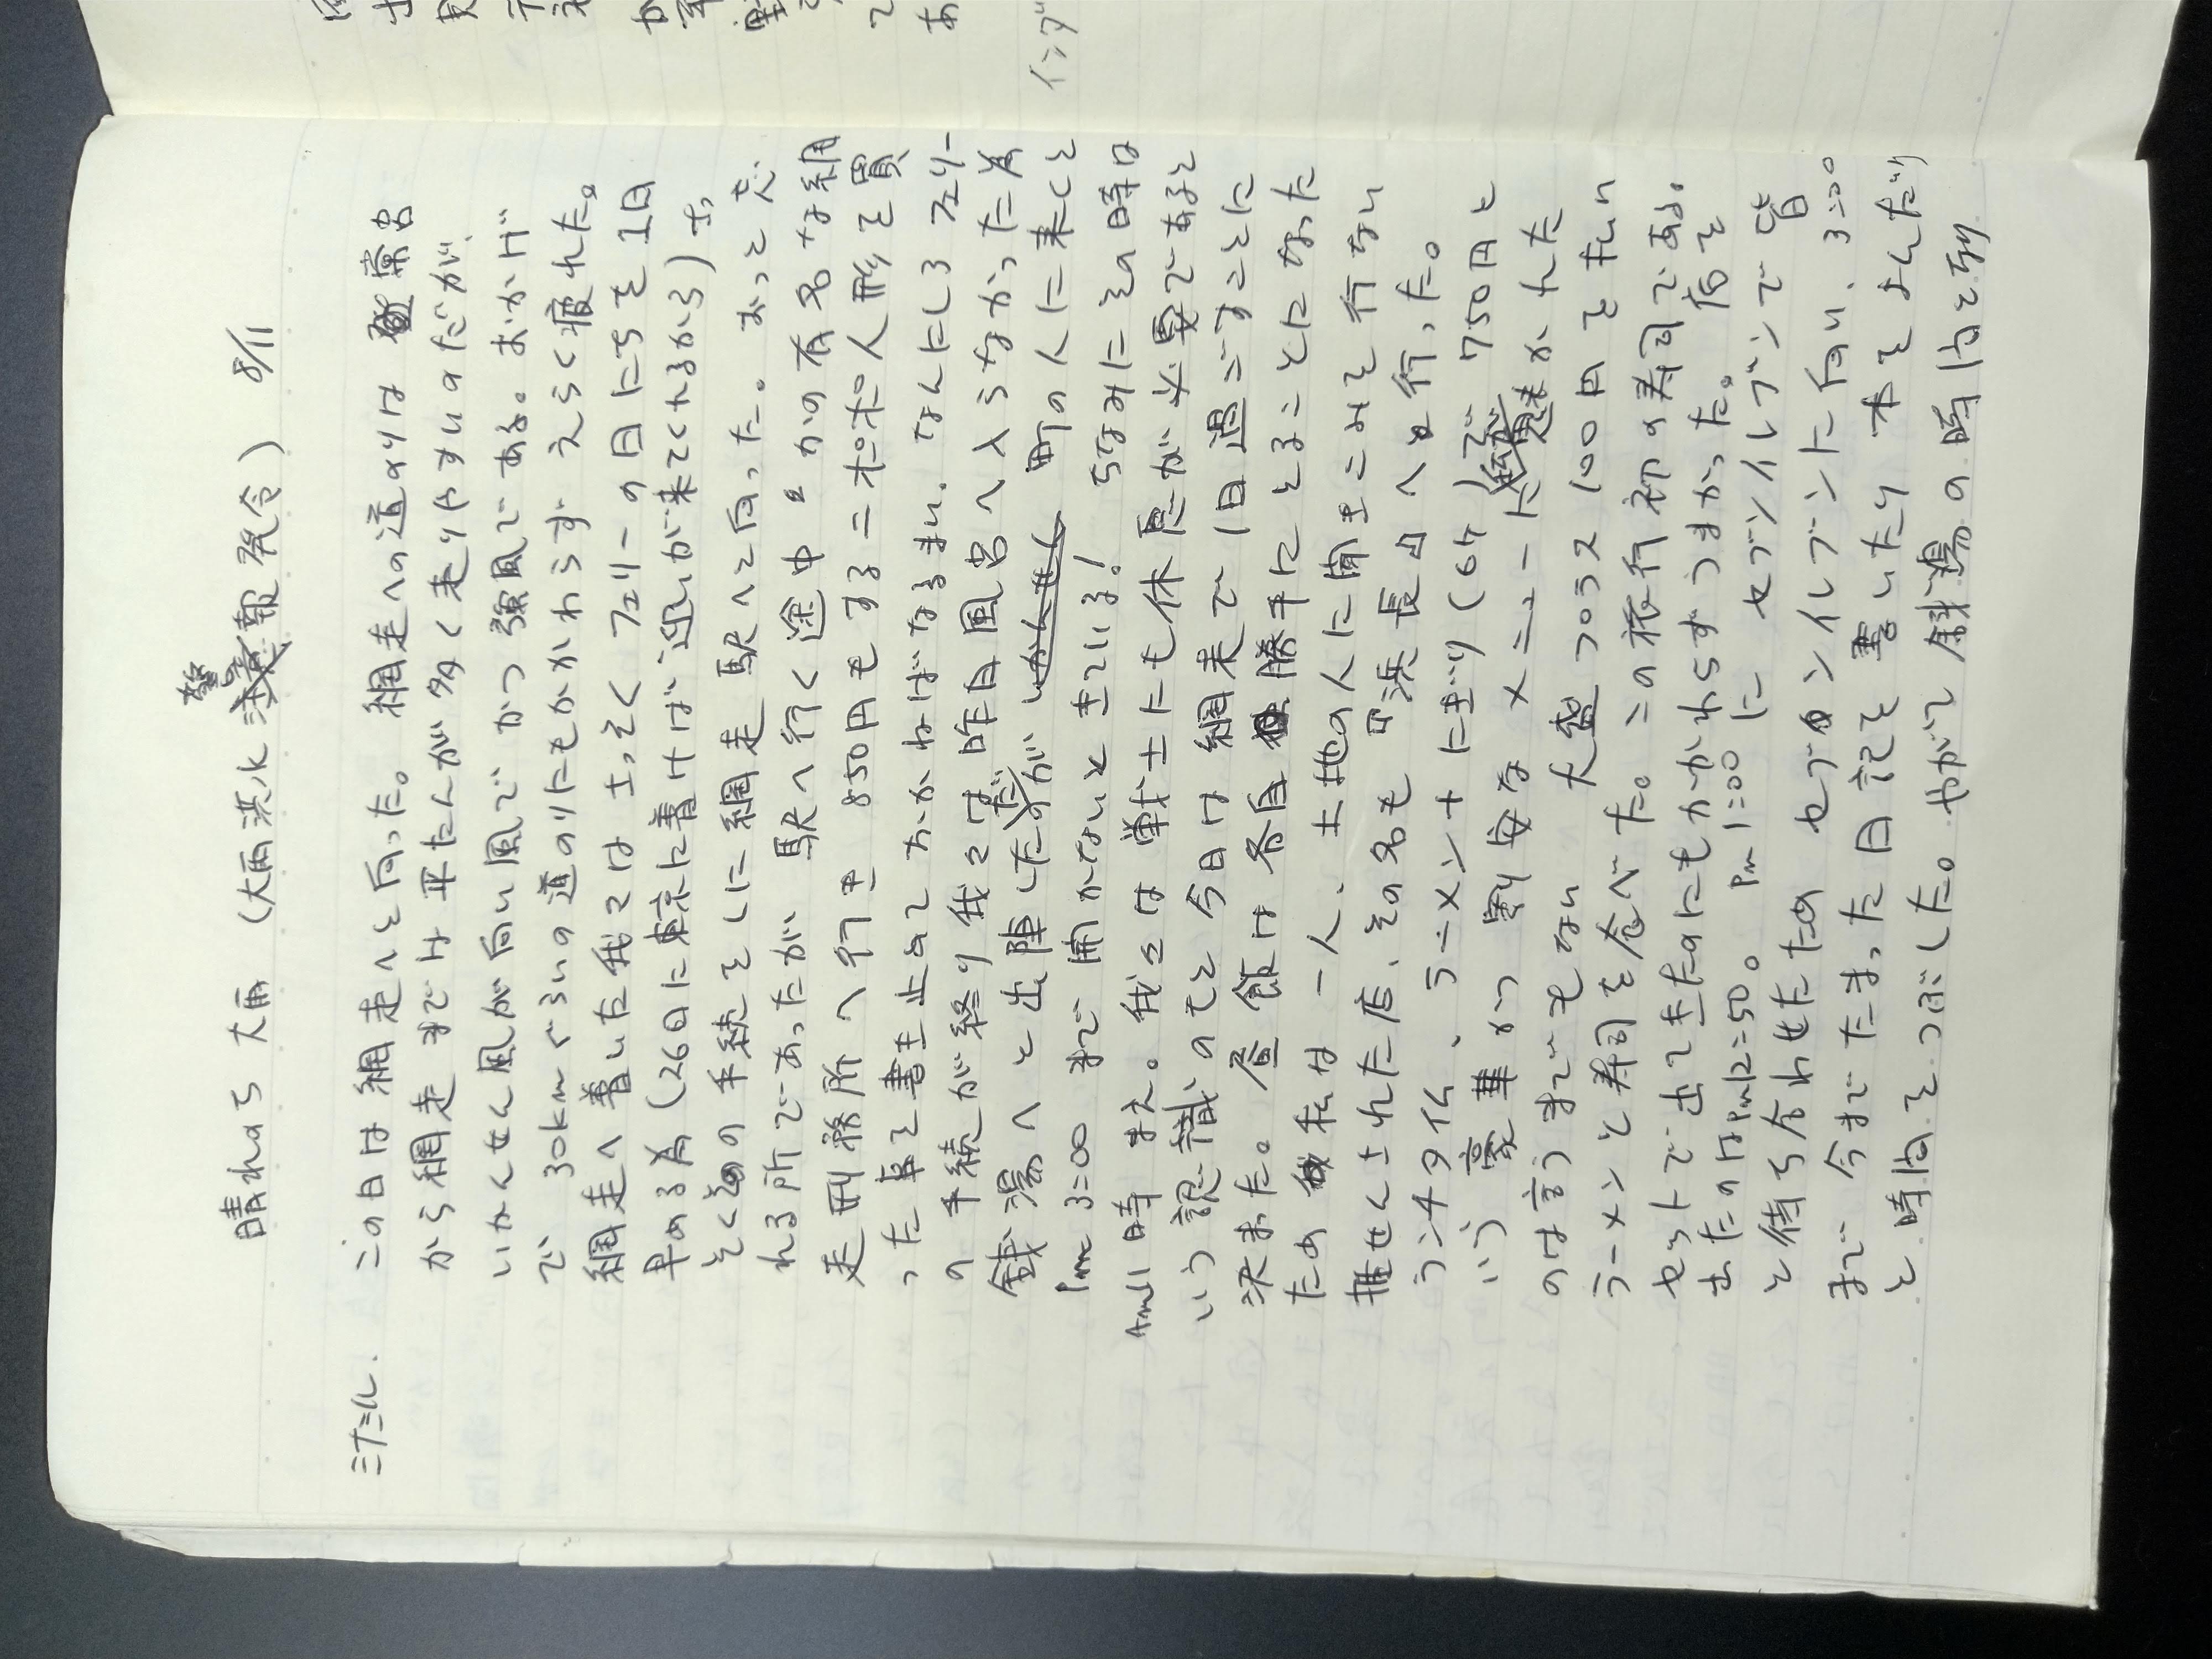 晴れのち大雨 (大雨洪水警報発令) 8/11
ミナミル. この日は網走へと向った。網走への道のりは常呂
から網走までは平たんが多く走りやすいのだが、
いかんせん風が向い風でかつ強風である。おかげ
で30kmぐらいの道のりにもかかわらずえらく疲れた。
網走へ着いた我々はさっそくフェリーの日にちを1日
早める為(26日に東京に着けば迎いが来てくれるから) さっ
そくその手続をしに網走駅へと向った。おっと忘
れる所であったが駅へ行く途中かの有名な網
走刑務所へ行き850円もするニポポ人形を買
った事を書き止めておかねばなるまい.なんにしろフェリー
の手続が終り我々は昨日風呂へ入らなかった為
銭湯へと出陣したが町の人に来くと
Pm3:00まで開かないときている!ちなみにその時は
Am11時まえ。我々は戦士にも休息が必要であると
いう認識のもと今日は網走で1日過ごすことに
決まった。昼飯は各自勝手にとることになった
ため私は一人、土地の人に聞きこみを行ない
推せんされた店、その名も
ランチタイム、ラーメン+にぎり(6ケ)で750円と
いう豪華かつ割安なメニューに惹かれた
のは言うまでもない 大盛つうラス100円を払い
ラーメンと寿司を食べた。この旅行初の寿司である。
セットで出てきたのにもかかわらずうまかった。店を
出たのはPm12:50。Pm1:00にセブンイレブンで皆
と待ち合わせたためセブンイレブンに向い、3:00
まで今までたまった日記を書いたり本をよんだり
と時間をつぶした。やがて銭湯の時間と到
インダ